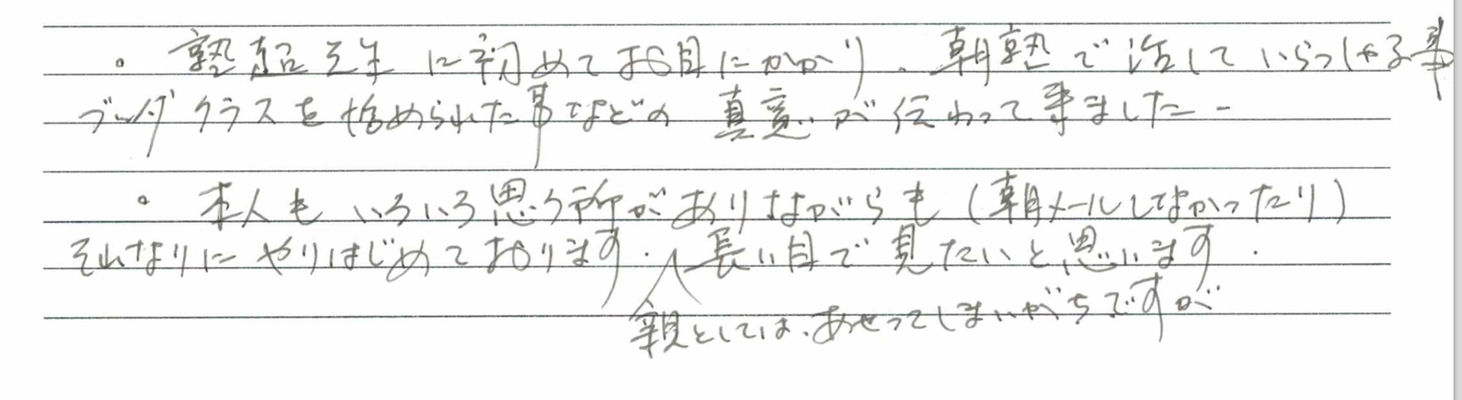 。塾超先生に初めてお目にかかり、朝塾で活していらっしゃる事
ブッダクラスを始められた事などの真意が伝わって来ました−
。本人もいろいろ思う所がありながらも(朝メールしなかったり)
それなりにやりはじめております. 長い目で見たいと思います.
親としては、あせってしまいがちですが